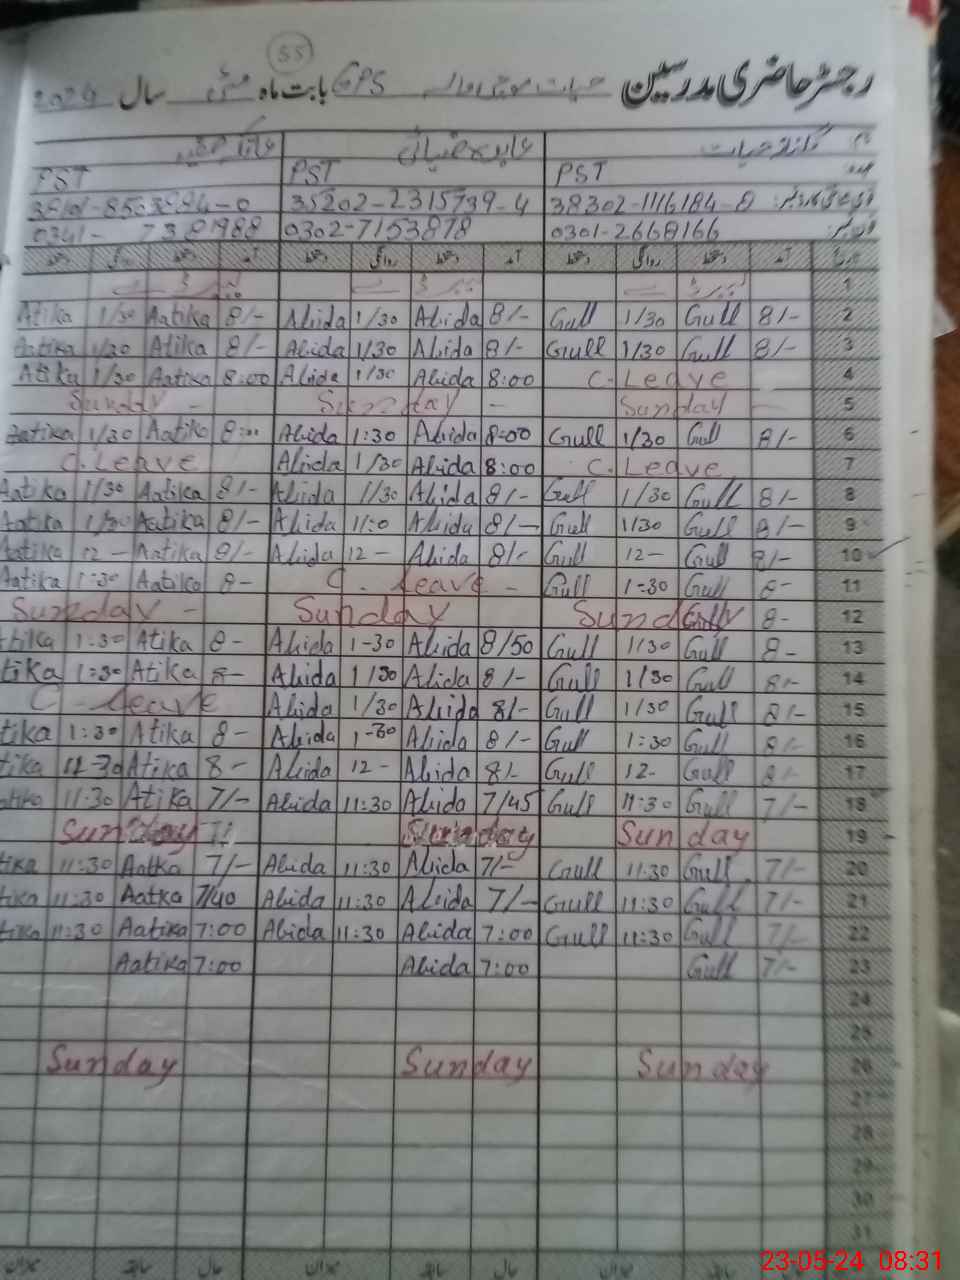 55
رجسٹر حاضری مدرسین GPS بابت ماہ مئی سال 2024
نام
عہدہ PST PST PST
38302-1116184-8 35202-2315739-4
فون نمبر 0301-2668166 0302-7153878 0341- 7381988
تاریخ آمد دستخط روانگی دستخط آمد دستخط روانگی دستخط آمد دستخط روانگی دستخط
1
Atika 1/30 Aatika 8/- Abida 1/30 Abida 8/- Gull 1/30 Gull 8/- 2
Aatika 1/30 Atika 8/- Abida 1/30 Abida 8/- Gull 1/30 Gull 8/- 3
Atika 1/30 Aatika 8:00 Abida 1/30 Abida 8:00 C. Leave 4
Sunday - Sunday - Sunday - 5
Aatika 1/30 Aatika 8:00 Abida 1:30 Abida 8:00 Gull 1/30 Gull 8/- 6
C. Leave Abida 1/30 Abida 8:00 C. Leave 7
Aatika 1/30 Aatika 8/- Abida 1/30 Abida 8/- Gull 1/30 Gull 8/- 8
Aatika 1/30 Aatika 8/- Abida Abida 8/- Gull 1/30 Gull 8/- 9
Aatika 12- Aatika 8/- Abida 12- Abida 8/- Gull 12- Gull 8/- 10
Aatika 1:30 Aatika 8- C. Leave - Gull 1-30 Gull 8- 11
Sunday - Sunday Sunday Gull 8- 12
tika 1:30 Atika 8- Abida 1-30 Abida 8/50 Gull 1/30 Gull 8- 13
tika 1:30 Atika 8- Abida 1/30 Abida 8/- Gull 1/30 Gull 8/- 14
C. Leave Abida 1/30 Abida 8/- Gull 1/30 Gull 8/- 15
tika 1:30 Atika 8- Abida 1-30 Abida 8/- Gull 1:30 Gull 8/- 16
tika Atika 8- Abida 12- Abida 8/- Gull 12- Gull 8/- 17
11:30 Atika 7/- Abida 11:30 Abida 7/45 Gull 11:30 Gull 7/- 18
Sunday Sunday Sunday 19
tika 11:30 Aatka 7/- Abida 11:30 Abida 7/- Gull 11:30 Gull 7/- 20
tika 11:30 Aatka 7/40 Abida 11:30 Abida 7/- Gull 11:30 Gull 7/- 21
tika 11:30 Aatika 7:00 Abida 11:30 Abida 7:00 Gull 11:30 Gull 7/- 22
Aatika 7:00 Abida 7:00 Gull 7/- 23
24
25
Sunday Sunday Sunday 26
27
28
29
30
31
23-05-24 08:31